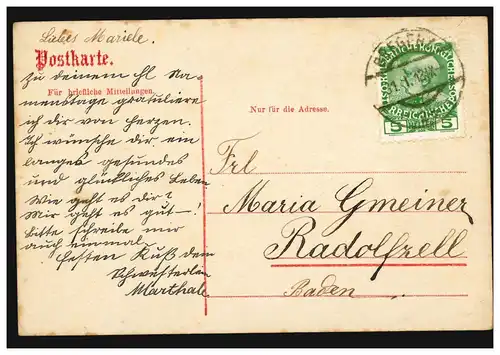 Liebes Mariele.
Postkarte.
zu deinem hl Na-
Für briefliche Mitteilungen.
menstage gratuliere
ich dir von herzen.
Ich wünsche dir ein
langes gesundes
und glückliches Leben
Wie geht es dir?
Mir geht es gut —!
Bitte schreibe mir
auch einmal.
festen Kuß dem
Schwesterlen
Marthale
Nur für die Adresse.
BREGENZ
5 5
Frl
Maria Gmeiner
Radolfzell
Baden